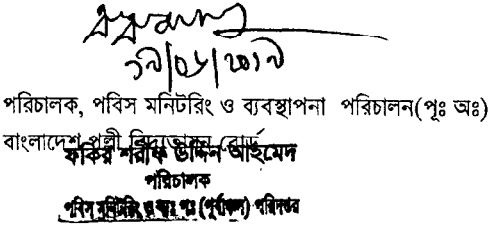 ১৯/০৬/২০১৯
পরিচালক, পবিস মনিটরিং ও ব্যবস্থাপনা পরিচালন(পূঃ অঃ)
বাংলাদেশ পল্লী বিদ্যুতায়ন বোর্ড
ফকির শরীফ উদ্দিন আহমেদ
পরিচালক
পবিস মনিটরিং ও ব্যঃ পঃ (পূর্বাঞ্চল) পরিদপ্তর